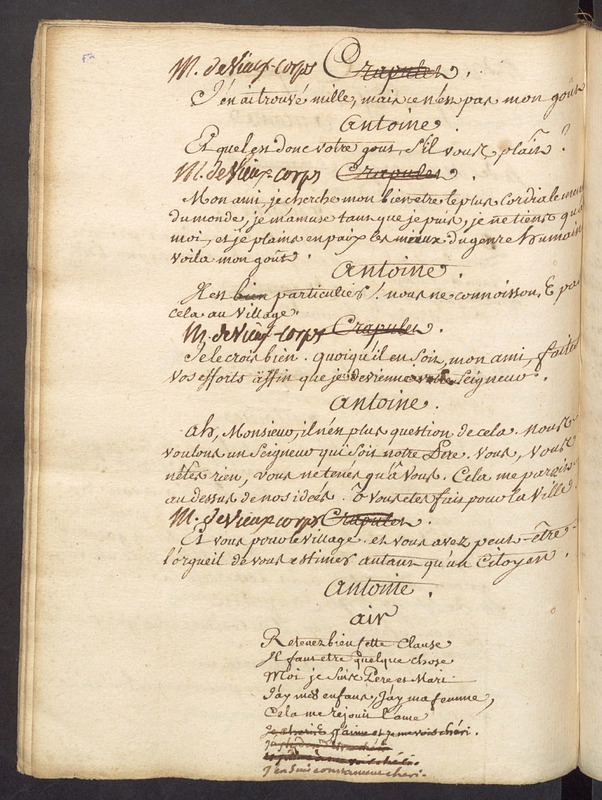 52
M. de Vieux-corps Crapules.
J'en ai trouvé mille, mais ce n'en pas mon goût
Antoine.
Et quel en donc votre gout, s'il vous plaît?
M. de Vieux-corps Crapules.
Mon ami, je cherche mon bien etre le plus Cordialement
du monde, je m'amuse tant que je puis, je ne tiens qu'à
moi, et je plains en paix les mieux du genre humain
voila mon goût.
Antoine.
Il en bien particulier! nous ne connoissons pas
cela au Village.
M. de Vieux-corps Crapules.
Je le crois bien. quoiqu'il en soit, mon ami, faites
vos efforts affin que je devienne votre Seigneur.
Antoine.
Ah, Monsieur, il n'en plus question de cela. nous
voulons un Seigneur qui soit notre Pere. Vous, vous
n'êtes rien, vous ne tenés qu'à vous. Cela me paroit
au dessus de nos idées. Ô vous etes fait pour la Ville.
M. de Vieux-corps Crapules.
Et vous pour le village. et vous avez peut-être
l'orgueil de vous estimer autant qu'un Citoyen.
Antoine.
air
Retenez bien cette Clause
Il faut etre quelque chose
Moi je suis Pere et Mari
J'ay mes enfans, J'ay ma femme,
Cela me rejouit l'ame
J'aime et je me vois cheri.
J'en suis constamment cheri.